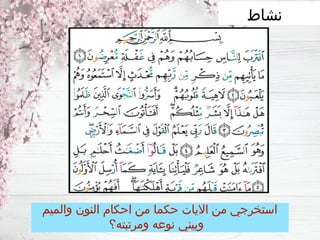 نشاط
بِسْمِ اللَّهِ الرَّحْمَٰنِ الرَّحِيمِ
اقْتَرَبَ لِلنَّاسِ حِسَابُهُمْ وَهُمْ فِي غَفْلَةٍ مُّعْرِضُونَ ۝١
مَا يَأْتِيهِم مِّن ذِكْرٍ مِّن رَّبِّهِم مُّحْدَثٍ إِلَّا اسْتَمَعُوهُ وَهُمْ
يَلْعَبُونَ ۝٢ لَاهِيَةً قُلُوبُهُمْ وَأَسَرُّوا النَّجْوَى الَّذِينَ ظَلَمُوا
هَلْ هَٰذَا إِلَّا بَشَرٌ مِّثْلُكُمْ أَفَتَأْتُونَ السِّحْرَ وَأَنتُمْ
تُبْصِرُونَ ۝٣ قَالَ رَبِّي يَعْلَمُ الْقَوْلَ فِي السَّمَاءِ وَالْأَرْضِ
وَهُوَ السَّمِيعُ الْعَلِيمُ ۝٤ بَلْ قَالُوا أَضْغَاثُ أَحْلَامٍ بَلِ
افْتَرَاهُ بَلْ هُوَ شَاعِرٌ فَلْيَأْتِنَا بِآيَةٍ كَمَا أُرْسِلَ الْأَوَّلُونَ
۝٥ مَا آمَنَتْ قَبْلَهُم مِّن قَرْيَةٍ أَهْلَكْنَاهَا أَفَهُمْ يُؤْمِنُونَ
استخرجي من الايات حكما من احكام النون والميم
وبيني نوعه ومرتبته؟